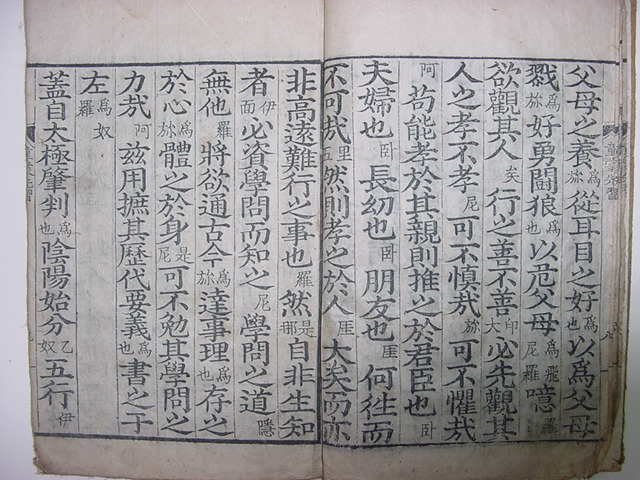 父母之養為弥從耳目之好為也以為父母
戮為弥好勇鬪狼為也以危父母為飛尼羅噫羅
欲觀其人矣行之善不善印大必先觀其
人之孝不孝尼可不慎哉弥可不懼哉
阿苟能孝於其親則推之於君臣也卧
夫婦也卧長幼也卧朋友也厓何徃而
不可哉里五然則孝之於人厓大矣而亦
非高遠難行之事也羅然是那自非生知
者伊面必資學問而知之尼學問之道隱
無他羅將欲通古今為弥達事理為也存之
於心為弥體之於身是尼可不勉其學問之
力哉阿茲用摭其歷代要義為也書之于
左為奴羅
蓋自太極肇判為也陰陽始分乙奴五行伊